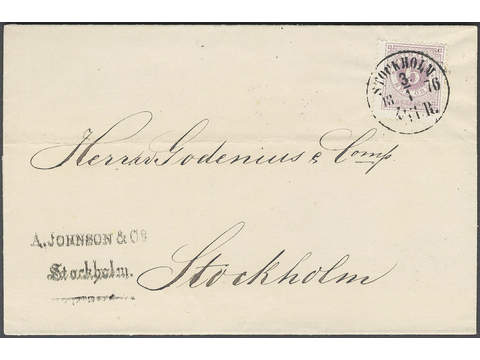 STOCKHOLM
3
1
18 76
TUR.
Herrar Godenius & Comp
Stockholm
A. JOHNSON & Co
Stockholm.